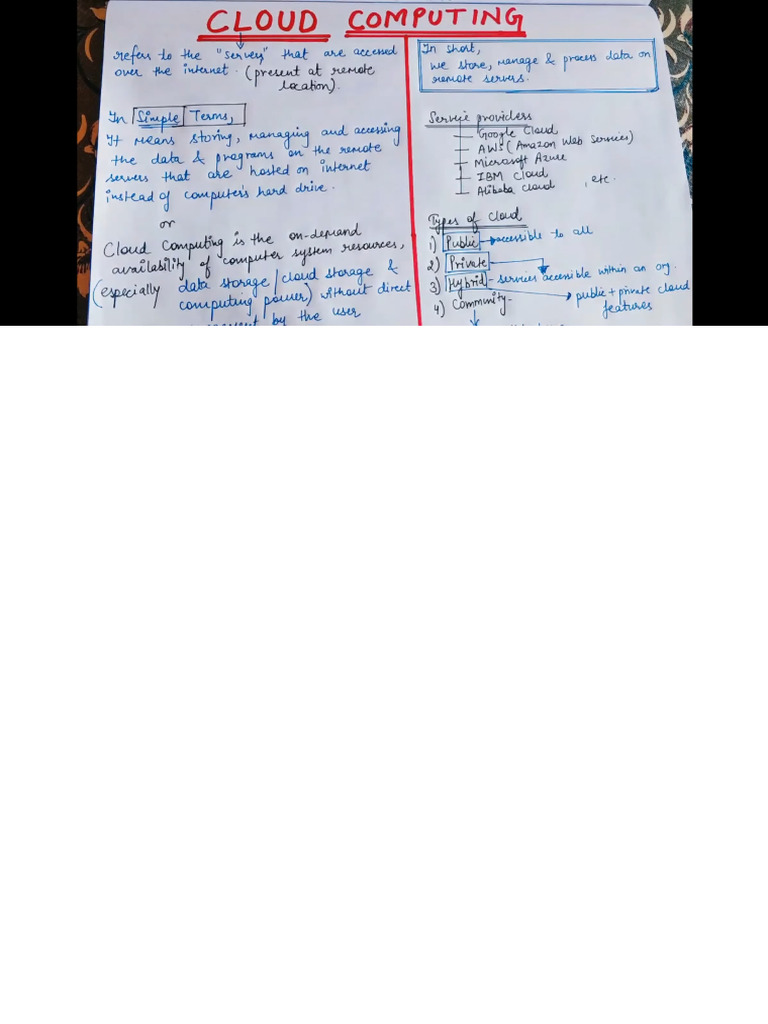 CLOUD COMPUTING
refers to the "servers" that are accessed
over the internet. (present at remote
location).
In Simple Terms,
It means storing, managing and accessing
the data & programs on the remote
servers that are hosted on internet
instead of computer's hard drive.
or
Cloud Computing is the on-demand
availability of computer system resources,
(especially data storage/cloud storage &
computing power) without direct
by the user
In short,
we store, manage & process data on
remote servers.
Service providers
Google Cloud
AWS (Amazon Web Services)
Microsoft Azure
IBM Cloud
Alibaba cloud , etc.
Types of Cloud
1) Public → accessible to all
2) Private
3) Hybrid - services accessible within an org.
public + private cloud
features
4) Community -